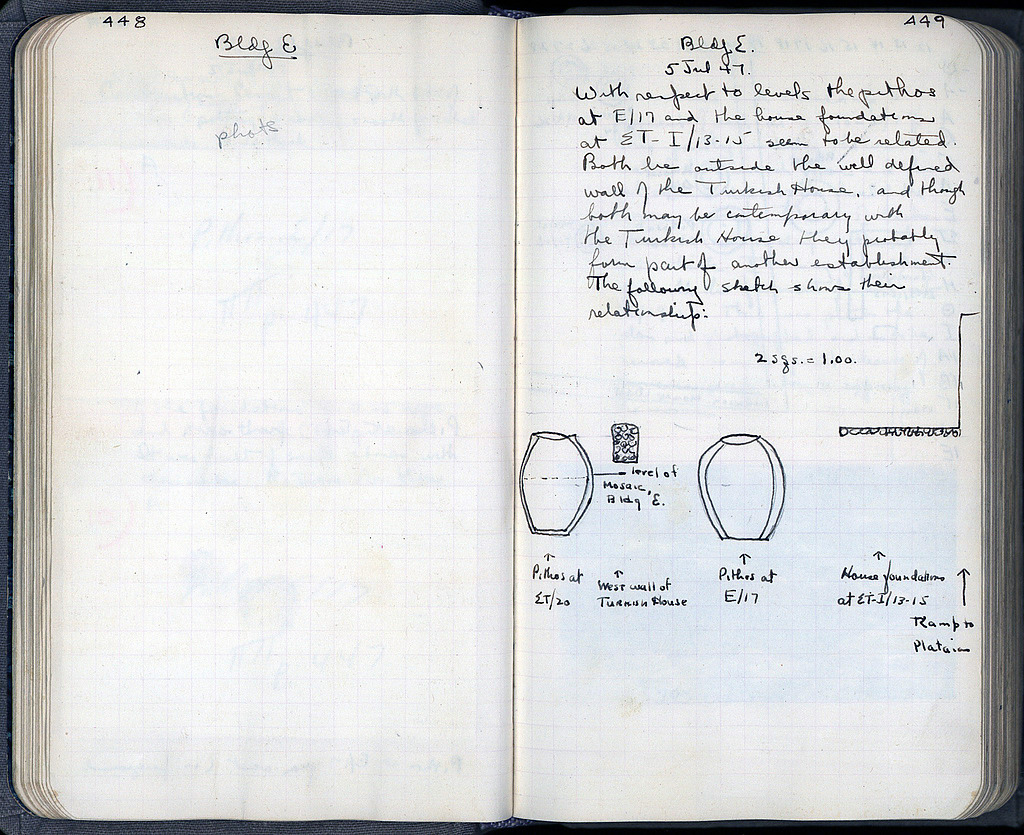 448
Bldg E
phots
449
Bldg E.
5 Jul 47.
With respect to levels the pithos
at E/17 and the house foundations
at ΣΤ-I/13-15 seem to be related.
Both lie outside the well defined
wall of the Turkish House, and though
both may be contemporary with
the Turkish House they probably
form part of another establishment.
The following sketch shows their
relationship:
2 sqs. = 1.00.
level of
Mosaic,
Bldg E.
Pithos at
ΣΤ/20
West wall of
Turkish House
Pithos at
E/17
House foundations
at ΣΤ-I/13-15
Ramp to